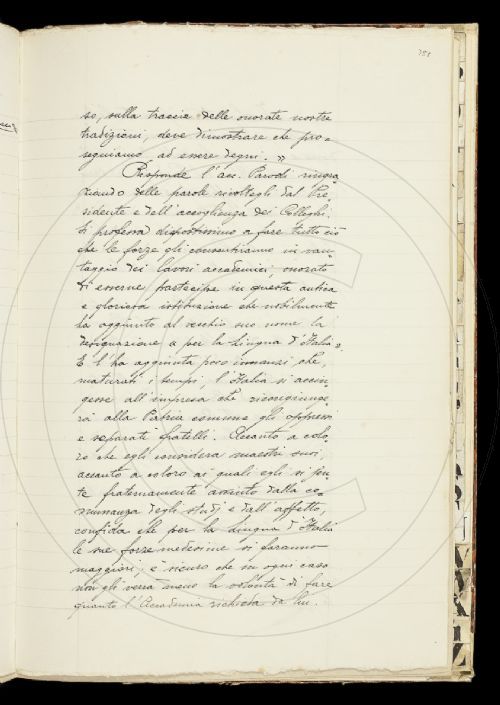 381
so, sulla traccia delle onorate nostre
tradizioni, deve dimostrare che pro=
seguiamo ad essere degni. »
Risponde l'acc. Parodi ringra
ziando delle parole rivoltegli dal Pre=
sidente e dell'accoglienza dei Colleghi.
Si professa dispostissimo a fare tutto ciò
che le forze gli consentiranno in van=
taggio dei lavori accademici, onorato
di esserne partecipe in questa antica
e gloriosa istituzione che nobilmente
ha aggiunto al vecchio suo nome la
designazione « per la Lingua d'Italia ».
E l'ha aggiunta poco innanzi che,
maturati i tempi, l'Italia si accin=
gesse all'impresa che ricongiunge=
rà alla Patria comune gli oppressi
e separati fratelli. Accanto a colo=
ro che egli considera maestri suoi,
accanto a coloro ai quali egli si sen=
te fraternamente avvinto dalla co=
munanza degli studj e dall'affetto,
confida che per la Lingua d'Italia
le sue forze medesime si faranno
maggiori; è sicuro che in ogni caso
non gli verrà meno la volontà di fare
quanto l'Accademia richieda da lui.